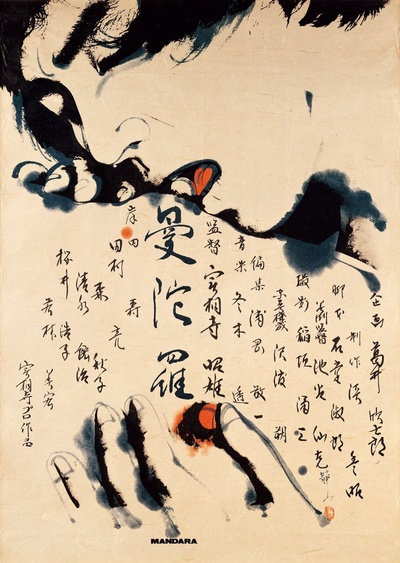 企画 葛井欣士郎
制作 淡 豊昭
脚本 石堂淑朗
美術 池谷仙克
撮影 稲垣涌三
編集 浦岡敬一
音楽 冬木 透
監督 実相寺 昭雄
曼陀羅
岸田
田村 亮
森 秋子
清水 紘治
桜井 浩子
若林 美宏
実相寺 作品
MANDARA